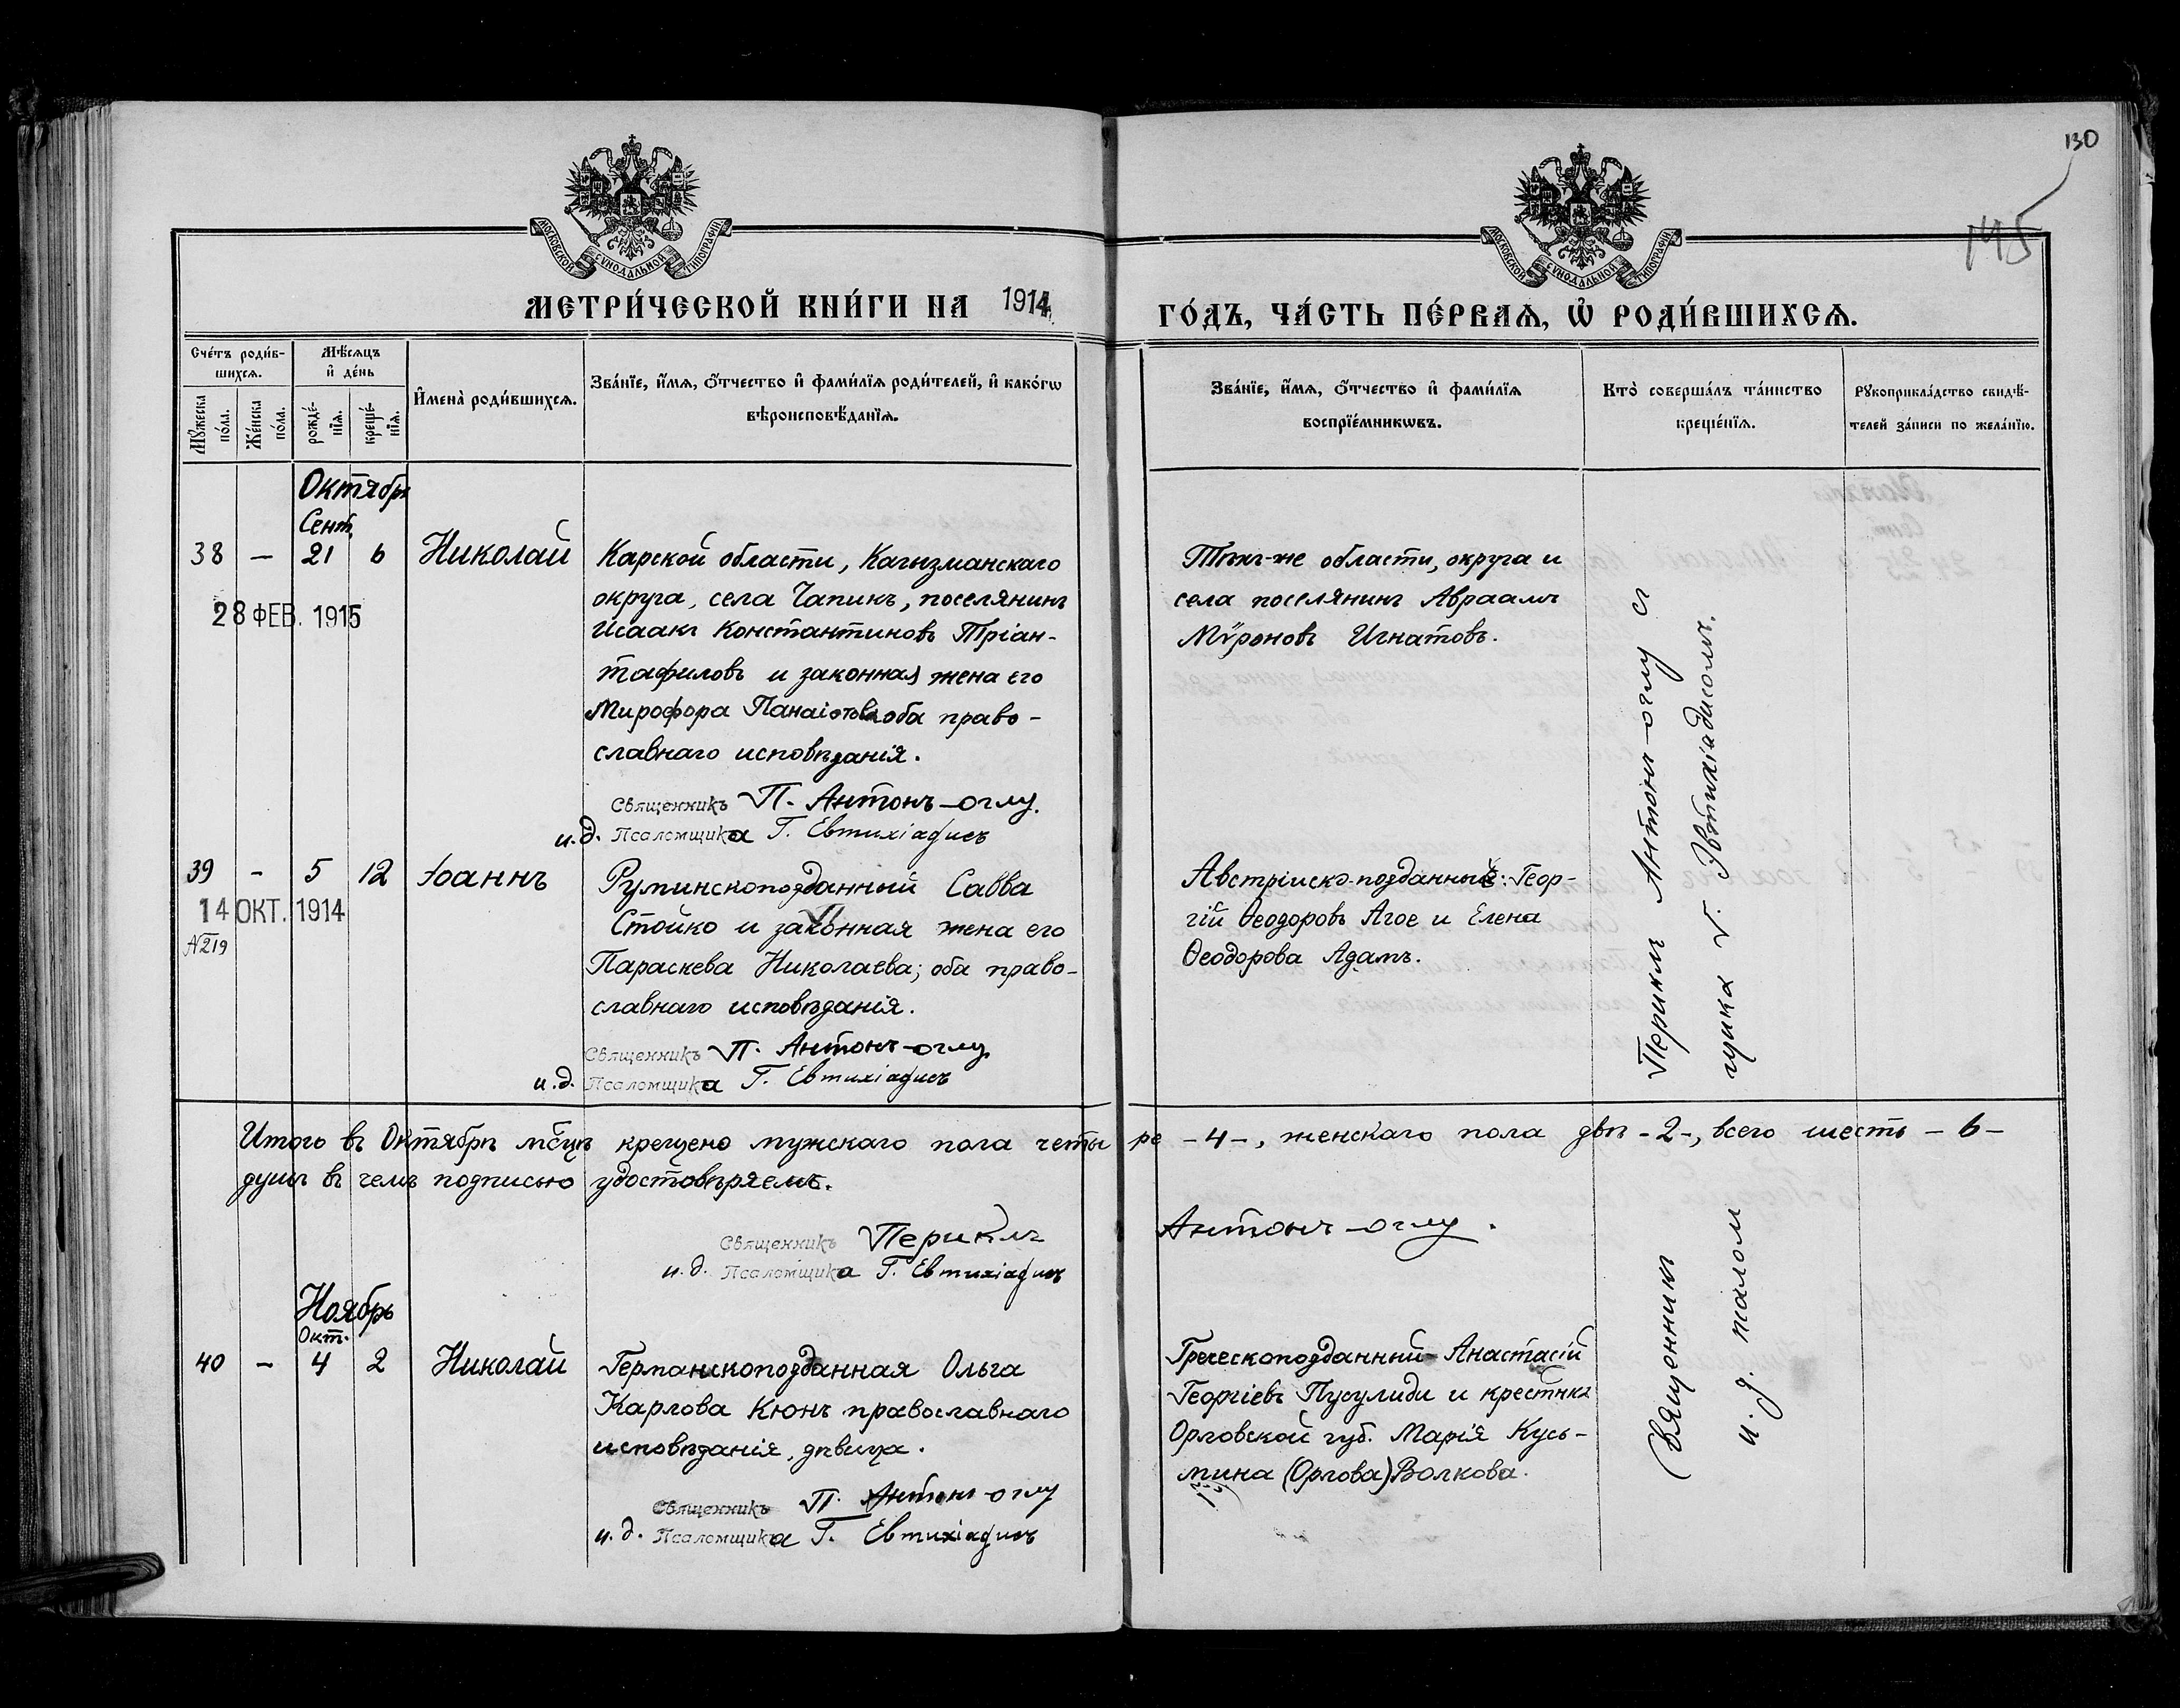 130
145
МОСКОВСКОЙ СѴНОДАЛЬНОЙ ТИПОГРАФІИ
МОСКОВСКОЙ СѴНОДАЛЬНОЙ ТИПОГРАФІИ
МЕТРИ́ЧЕСКОЙ КНИ́ГИ НА 1914
ГО́ДЪ, ЧА́СТЬ ПЕ́РВАѦ, Ѡ҆ РОДИ́ВШИХСѦ.
Сче́тъ роди́в-
шихсѧ.
Мꙋ́жеска по́ла.
Же́нска по́ла.
Мѣ́сѧцъ
и҆ де́нь
рожде́-
нїѧ.
креще́-
нїѧ.
И҆мена̀ роди́вшихсѧ.
Зва́нїе, и҆́мѧ, ѻ҆́тчество и҆ фами́лїѧ роди́телей, и҆ како́гѡ
вѣроисповѣ́данїѧ.
Зва́нїе, и҆́мѧ, ѻ҆́тчество и҆ фами́лїѧ
воспрїе́мникѡвъ.
Кто̀ соверша́лъ та́инство
креще́нїѧ.
Рꙋкоприкла́дство свидѣ́-
телей за́писи по жела́нїю.
Октябрь
Сент.
38 – 21 6 Николай
28 ФЕВ. 1915
Карской области, Кагызманскаго
округа, села Чапикъ, поселянинъ
Исаакъ Константиновъ Тріан-
тафиловъ и законная жена его
Мирофора Панаіотова оба право-
славнаго исповѣданія.
Священникъ П. Антонъ-оглу.
и.д. Псаломщика Г. Евтихіадисъ
Тѣхъ-же области, округа и
села поселянинъ Авраамъ
Мѵроновъ Игнатовъ.
39 – 5 12 Іоаннъ
14 ОКТ. 1914
№219
Руминскоподданный Савва
Стойко и законная жена его
Параскева Николаева; оба право-
славнаго исповѣданія.
Священникъ П. Антонъ-оглу
и.д. Псаломщика Г. Евтихіадисъ
Австрійско-подданные: Геор-
гій Ѳеодоровъ Агое и Елена
Ѳеодорова Адамъ.
Итого въ Октябрѣ мѣсцѣ крещено мужскаго пола четы ре –4–, женскаго пола двѣ –2–, всего шесть –6–
душъ въ чемъ подписью удостовѣряемъ.
Священникъ Периклъ Антонъ-оглу.
и.д. Псаломщика Г. Евтихіадисъ
Ноябрь
Окт.
40 – 4 2 Николай
Германскоподданная Ольга
Карлова Кюнъ православнаго
исповѣданія, дѣвица.
Священникъ П. Антонъ-оглу
и.д. Псаломщика Г. Евтихіадисъ
Греческоподданный Анастасій
Георгіевъ Пусулиди и крестнка
Орловской губ. Марія Кузь-
мина (Орлова) Волкова.
Священникъ Периклъ Антонъ-оглу съ
и.д. псалом щика Г. Эвтихіадисомъ.